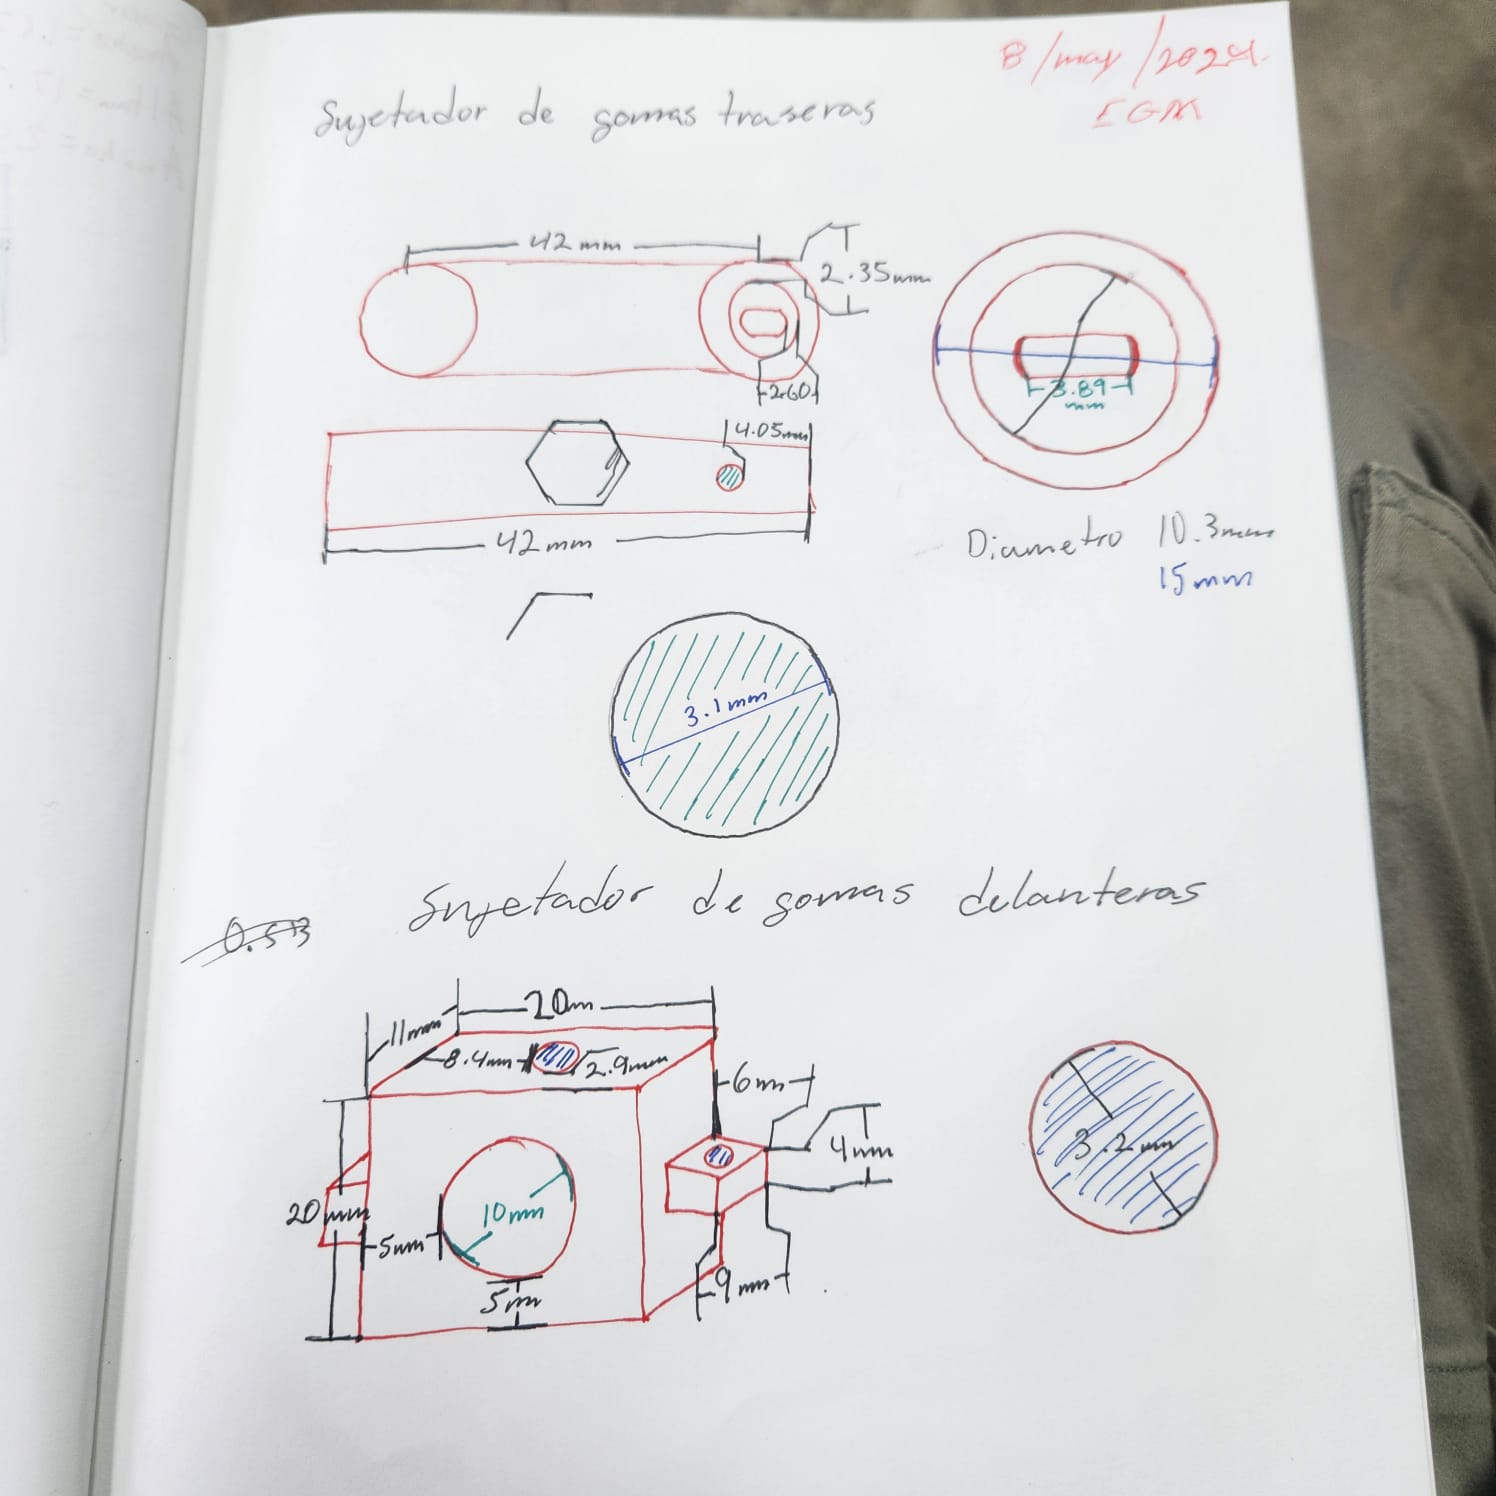 8/may/2024
EGM
Sujetador de gomas traseras
42 mm
2.35mm
2.60
3.89
mm
4.05mm
42 mm
Diametro 10.3mm
15mm
3.1mm
Sujetador de gomas delanteras
0.53
20m
11mm
8.4mm
2.9mm
6m
4mm
3.2mm
20mm
10mm
5mm
5m
9mm